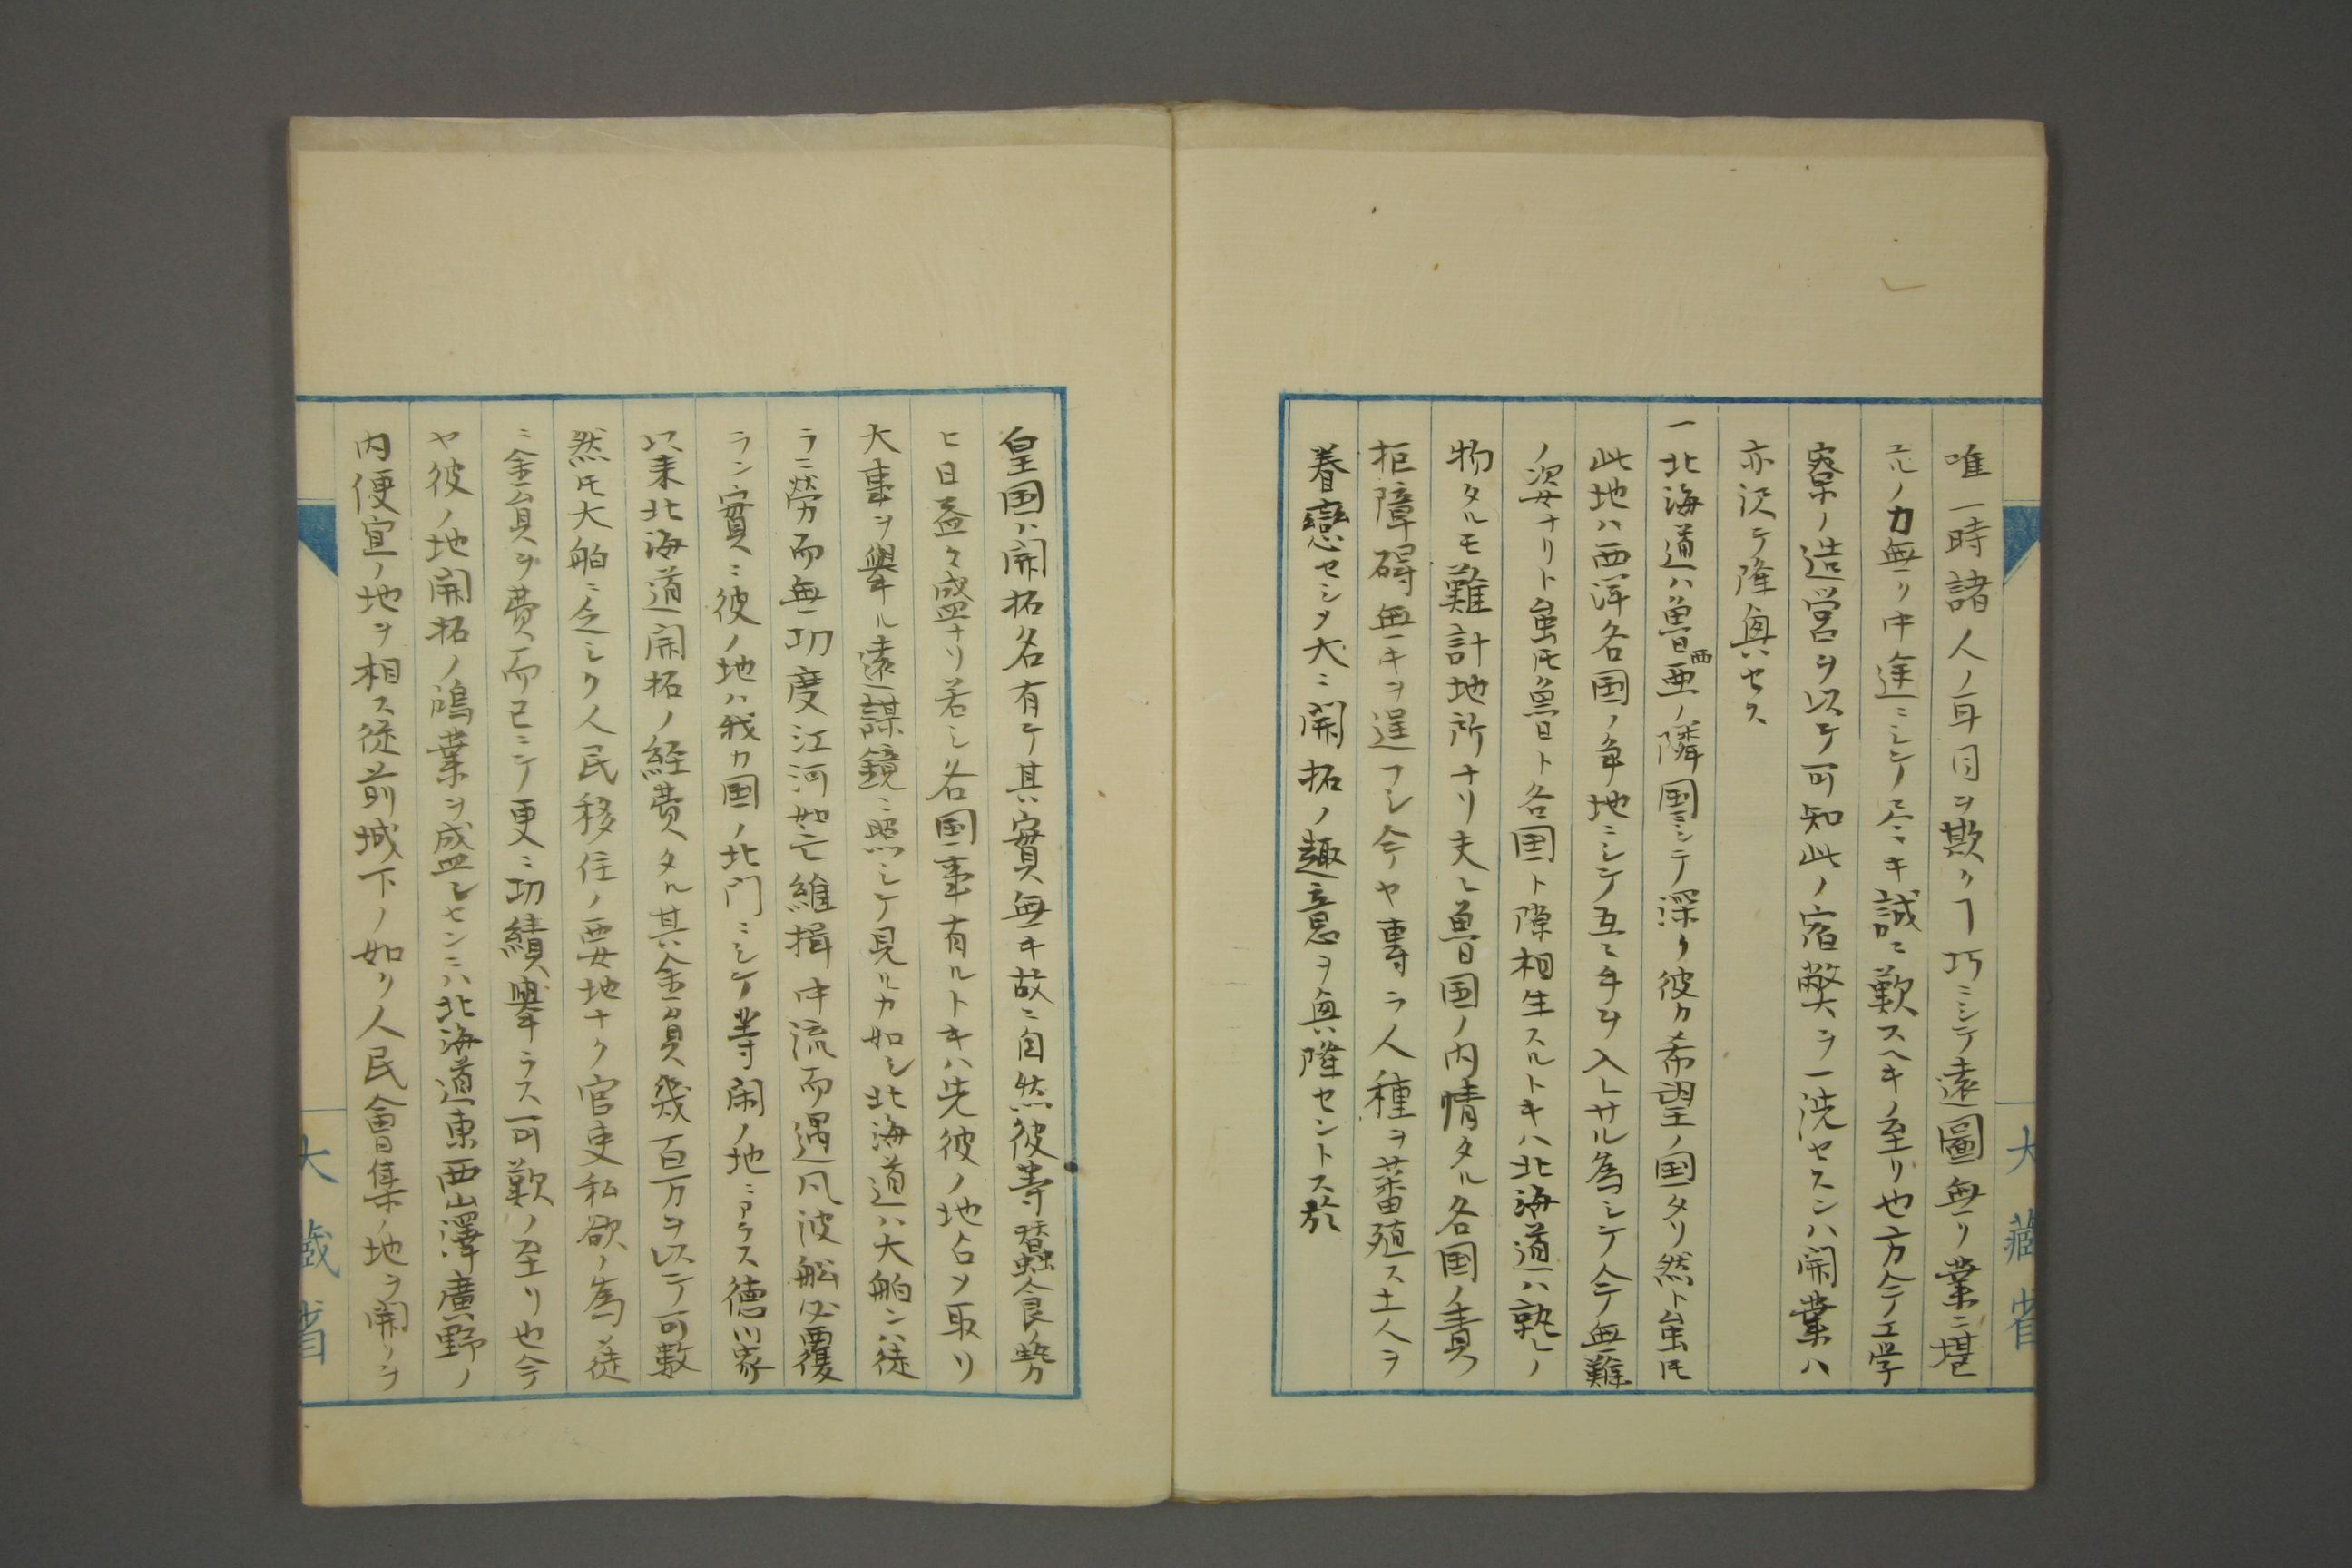 唯一時諸人ノ耳目ヲ欺クヿ巧ニシテ遠圖無リ業ニ堪
ユルノ力無リ中途ニシテ尽ニキ誠ニ歎スヘキノ至リ也方今工学
寮ノ造営ヲ以テ可知此ノ宿弊ヲ一洗セスンハ開業ハ
亦决テ隆興セス
一北海道ハ魯西亜ノ隣国ニシテ深ク彼カ希望ノ国タリ然ト虽𪜈
此地ハ西洋各国ノ争地ニシテ互ニ手ヲ入レサル為シテ今無難
ノ姿ナリト虽𪜈魯ト各国ト隙相生スルトキハ北海道ハ孰レノ
物タルモ難計地所ナリ夫レ魯国ノ内情タル各国ノ責
拒障碍無キヲ逞フシ今ヤ專ラ人種ヲ蕃殖ス土人ヲ
眷戀セシメ大ニ開拓ノ趣意ヲ興隆セントス於
皇国ハ開拓名有テ其實無キ故ニ自然彼等蠶食ノ勢
ヒ日益々盛ナリ若シ各国事有ルトキハ先彼ノ地占メ取リ
大事ヲ舉ル遠謀鏡ニ照シテ見ルカ如シ北海道ハ大舶ンハ徒
ラニ労力而無功度江河如亡維揖中流而遇風波舩必覆
ラン實ニ彼ノ地ハ我カ国ノ北門ニシテ等閑ノ地ニアラス徳川家
以来北海道開拓ノ経費タル其金員幾百万ヲ以テ可数
然𪜈大舶ニ乏シク人民移住ノ要地ナク官吏私欲ノ為徒
ニ金員ヲ費而已ニテ更ニ功績舉ラス可歎ノ至リ也今
ヤ彼ノ地開拓ノ鴻業ヲ盛レセンニハ北海道東西山澤廣野ノ
内便宜ノ地ヲ相ス従前城下ノ如リ人民會集ノ地ヲ開リヲ
大藏省
大藏省